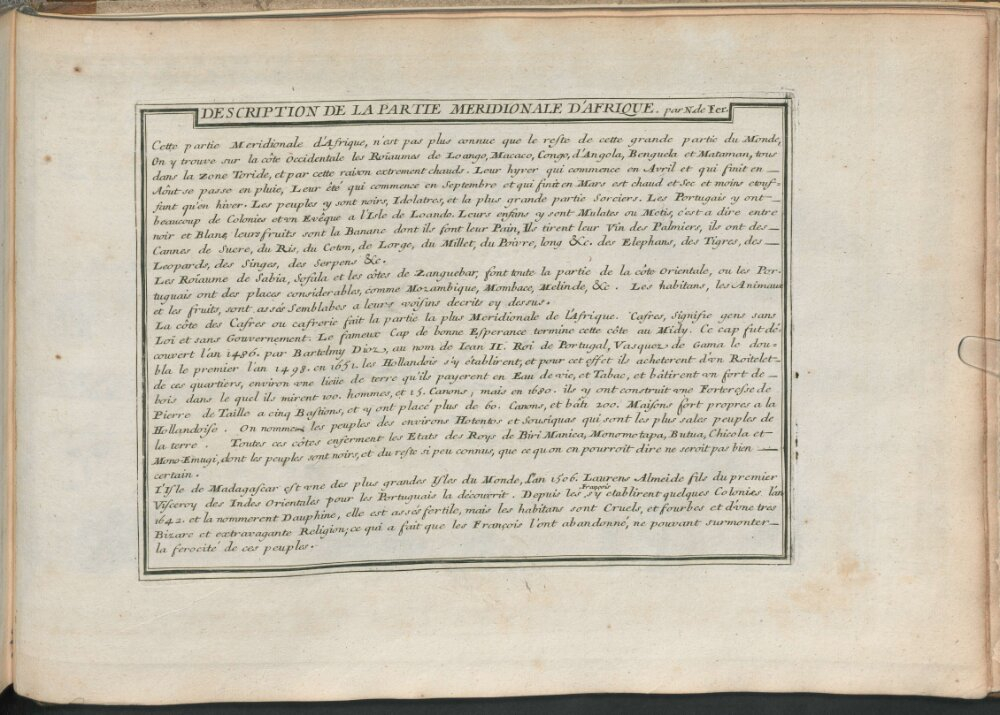 DESCRIPTION DE LA PARTIE MERIDIONALE D'AFRIQUE. par N. de Fer.
Cette partie Meridionale d'Afrique, n'est pas plus connue que le reste de cette grande partie du Monde,
On y trouve sur la côte Occidentale les Roïaumes de Loango, Macaco, Congo, d'Angola, Benguela et Mataman, tous
dans la Zone Toride, et par cette raison extrement chauds. Leur hyver qui commence en Avril et qui finit en
Aôut se passe en pluie, Leur été qui commence en Septembre et qui finit en Mars est chaud et Sec et moins etouf-
fant qu'en hiver. Les peuples y sont noirs, Idolatres, et la plus grande partie Sorciers. Les Portugais y ont
beaucoup de Colonies et vn Evêque a l'Isle de Loando. Leurs enfans y sont Mulates ou Metis, c'est a dire entre
noir et Blanc, leurs fruits sont la Banane dont ils font leur Pain, Ils tirent leur Vin des Palmiers, ils ont des
Cannes de Sucre, du Ris, du Coton, de Lorge, du Millet, du Poivre, long &c. des Elephans, des Tigres, des
Leopards, des Singes, des Serpens &c.
Les Roïaume de Sabia, Sofala et les côtes de Zanguebar, font toute la partie de la côte Orientale, ou les Por-
tuguais ont des places considerables, comme Mozambique, Mombace, Melinde, &c. Les habitans, les Animaux
et les fruits, sont assés Semblabes a leurs voisins decrits cy dessus.
La côte des Cafres ou cafrerie fait la partie la plus Meridionale de l'Afrique. Cafres, Signifie gens sans
Loi et sans Gouvernement. Le fameux Cap de bonne Esperance termine cette côte au Midy. Ce cap fut dé-
couvert l'an 1486. par Bartelmy Dioz, au nom de Iean II. Roi de Portugal, Vasquez de Gama le dou-
bla le premier l'an 1498. en 1651. les Hollandois s'y établirent, et pour cet effet ils acheterent d'vn Roitelet
de ces quartiers, environ vne lieüe de terre qu'ils payerent en Eau de vie, et Tabac, et bâtirent vn fort de
bois dans le quel ils mirent 100. hommes, et 15. Canons, mais en 1680. ils y ont construit vne Forteresse de
Pierre de Taille a cinq Bastions, et y ont placé plus de 60. Canons, et bâti 200. Maisons fort propres a la
Hollandoise. On nomme les peuples des environs Hotentos et Sousiquas qui sont les plus sales peuples de
la terre. Toutes ces côtes enferment les Etats des Roys de Biri Manica, Monomotapa, Butua, Chicola et
Mono-Emugi, dont les peuples sont noirs, et du reste si peu connus, que ce qu on en pourroit dire ne seroit pas bien
certain.
L'Isle de Madagascar est vne des plus grandes Isles du Monde, l'an 1506. Laurens Almeide fils du premier
Visceroy des Indes Orientales pour les Portuguais la découvrit. Depuis les François s'y établirent quelques Colonies l'an
1642. et la nommerent Dauphine, elle est assés fertile, mais les habitans sont Cruels, et fourbes et d'vne tres
Bizare et extravagante Religion; ce qui a fait que les François l'ont abandonné, ne pouvant surmonter
la ferocité de ces peuples.